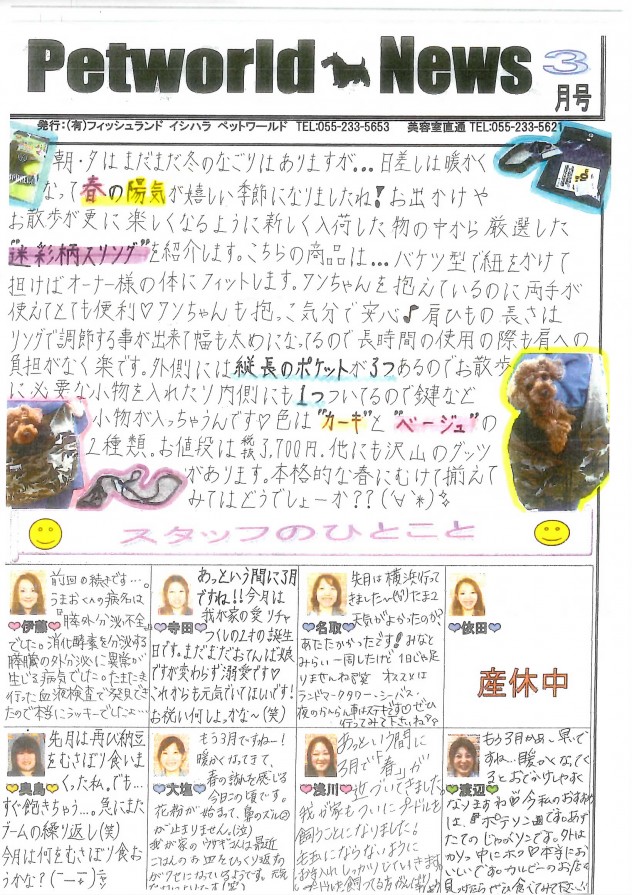 Petworld News 3月号
発行:(有)フィッシュランド イシハラ ペットワールド TEL:055-233-5653 美容室直通 TEL:055-233-5621
朝・夕はまだまだ冬のなごりはありますが…日差しは暖かく
なって春の陽気が嬉しい季節になりましたね!お出かけや
お散歩が更に楽しくなるように新しく入荷した物の中から厳選した
"迷彩柄スリング"を紹介します。こちらの商品は…バケツ型で紐をかけて
担げばオーナー様の体にフィットします。ワンちゃんを抱えているのに両手が
使えてとても便利♡ワンちゃんも抱っこ気分で安心♪肩ひもの長さは
リングで調節する事が出来て幅も太めになってるので長時間の使用の際も肩への
負担がなく楽です。外側には縦長のポケットが3つあるのでお散歩
に必要な小物を入れたり内側にも1つついてるので鍵など
小物が入っちゃうんです♡色は"カーキ"と"ベージュ"の
2種類。お値段は税抜3,700円。他にも沢山のグッツ
があります。本格的な春にむけて揃えて
みてはどうでしょーか??(∀`*)
スタッフのひとこと
伊藤
前回の続きです…。
うまおくんの病名は
『膵外分泌不全』
でした。消化酵素を分泌する
膵臓の外分泌に異常が
生じる病気でした。たまたま
行った血液検査で発見でき
たので本当にラッキーでしたょ…
寺田
あっという間に3月
ですね!!今月は
我が家の愛リチャ
つくしの2才の誕生
日です。まだまだおてんば娘
ですが変わらず溺愛です♡
これからも元気でいてほしいです!
お祝い何しよっかな〜(笑)
名取
先月は横浜行って
きました〜
天気がよかったのか?
あたたかかったです!みなと
みらい一周したけど1日じゃ足
りませんね
オススメは
ランドマークタワー・シーバス・
ぜひ
行ってみて下さいね
依田
産休中
奥島
先月は再び納豆
をむさぼり食いま
くった私。でも…
すぐ飽きちゃう…。急にまた
ブームの繰り返し(笑)
今月は何をむさぼり食お
うかな?(￣ー￣)
大塩
もう3月ですねー!
暖かくなってきて、
春の訪れを感じる
今日この頃です。
花粉が始まって、鼻のズルズル
が止まりません。(泣)
我が家のウサギさんは最近
ごはんのお皿をひっくり返す
がクセになっているようです。元気
浅川
あっという間に
3月で「春」が
近づいてきました。
我が家もついにプードルを
飼うことになりました!
毛玉にならないように
お手入れしっかりしていきます
渡辺
もう3月かぁ〜早いで
すね…暖かくなってく
るとおでかけしやすく
なりますね♡今私のおすすめ
は、『ポテソン』です。あげ
たてのじゃがリンこです。外は
かりっ。中にホク♡本当にお
いしいです。カルビーのお店を